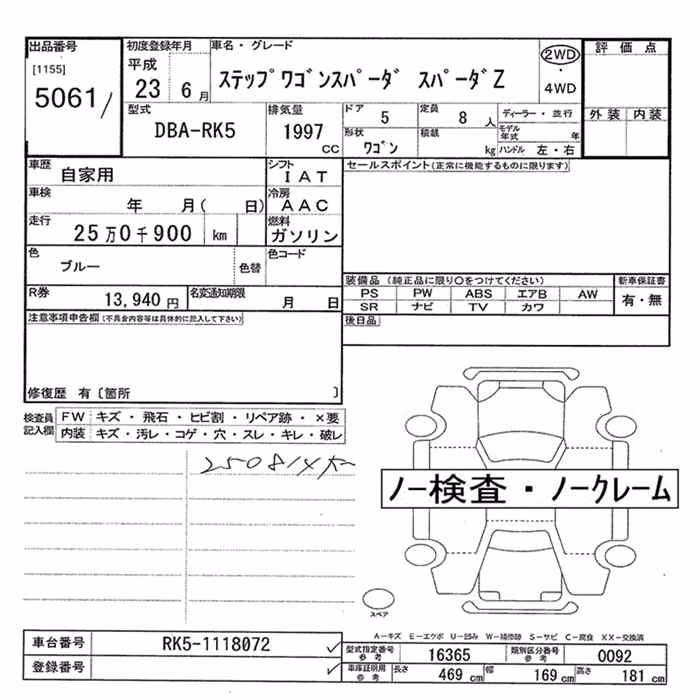 出品番号 初度登録年月 車名・グレード 2WD 評価点
[1155] 平成 ステップワゴンスパーダ スパーダZ ・
5061/ 23 6月 4WD
型式 排気量 ドア 5 定員 8人 ディーラー・並行 外装 内装
DBA-RK5 1997cc 形状 ワゴン 積載 kg モデル年式 年
ハンドル 左・右
車歴 自家用 シフト IAT セールスポイント(正常に機能するものに限ります)
車検 年 月(日) 冷房 AAC
走行 25万0千900 km 燃料 ガソリン
色 ブルー 色替 色コード
装備品 (純正品に限り○をつけてください) 新車保証書
R券 13,940円 名変通知期限 月 日 PS PW ABS エアB AW 有・無
SR ナビ TV カワ
注意事項申告欄(不具合内容等は具体的に記入して下さい) 後日品
修復歴 有〔箇所 〕
検査員記入欄 FW キズ・飛石・ヒビ割・リペア跡・×要
内装 キズ・汚レ・コゲ・穴・スレ・キレ・破レ
ノー検査・ノークレーム
スペア
A-キズ E-エクボ U-凹み W-補修跡 S-サビ C-腐食 XX-交換済
車台番号 RK5-1118072 型式指定番号 参考 16365 類別区分番号 参考 0092
登録番号 車庫証明用 参考 長さ 469cm 幅 169cm 高さ 181cm